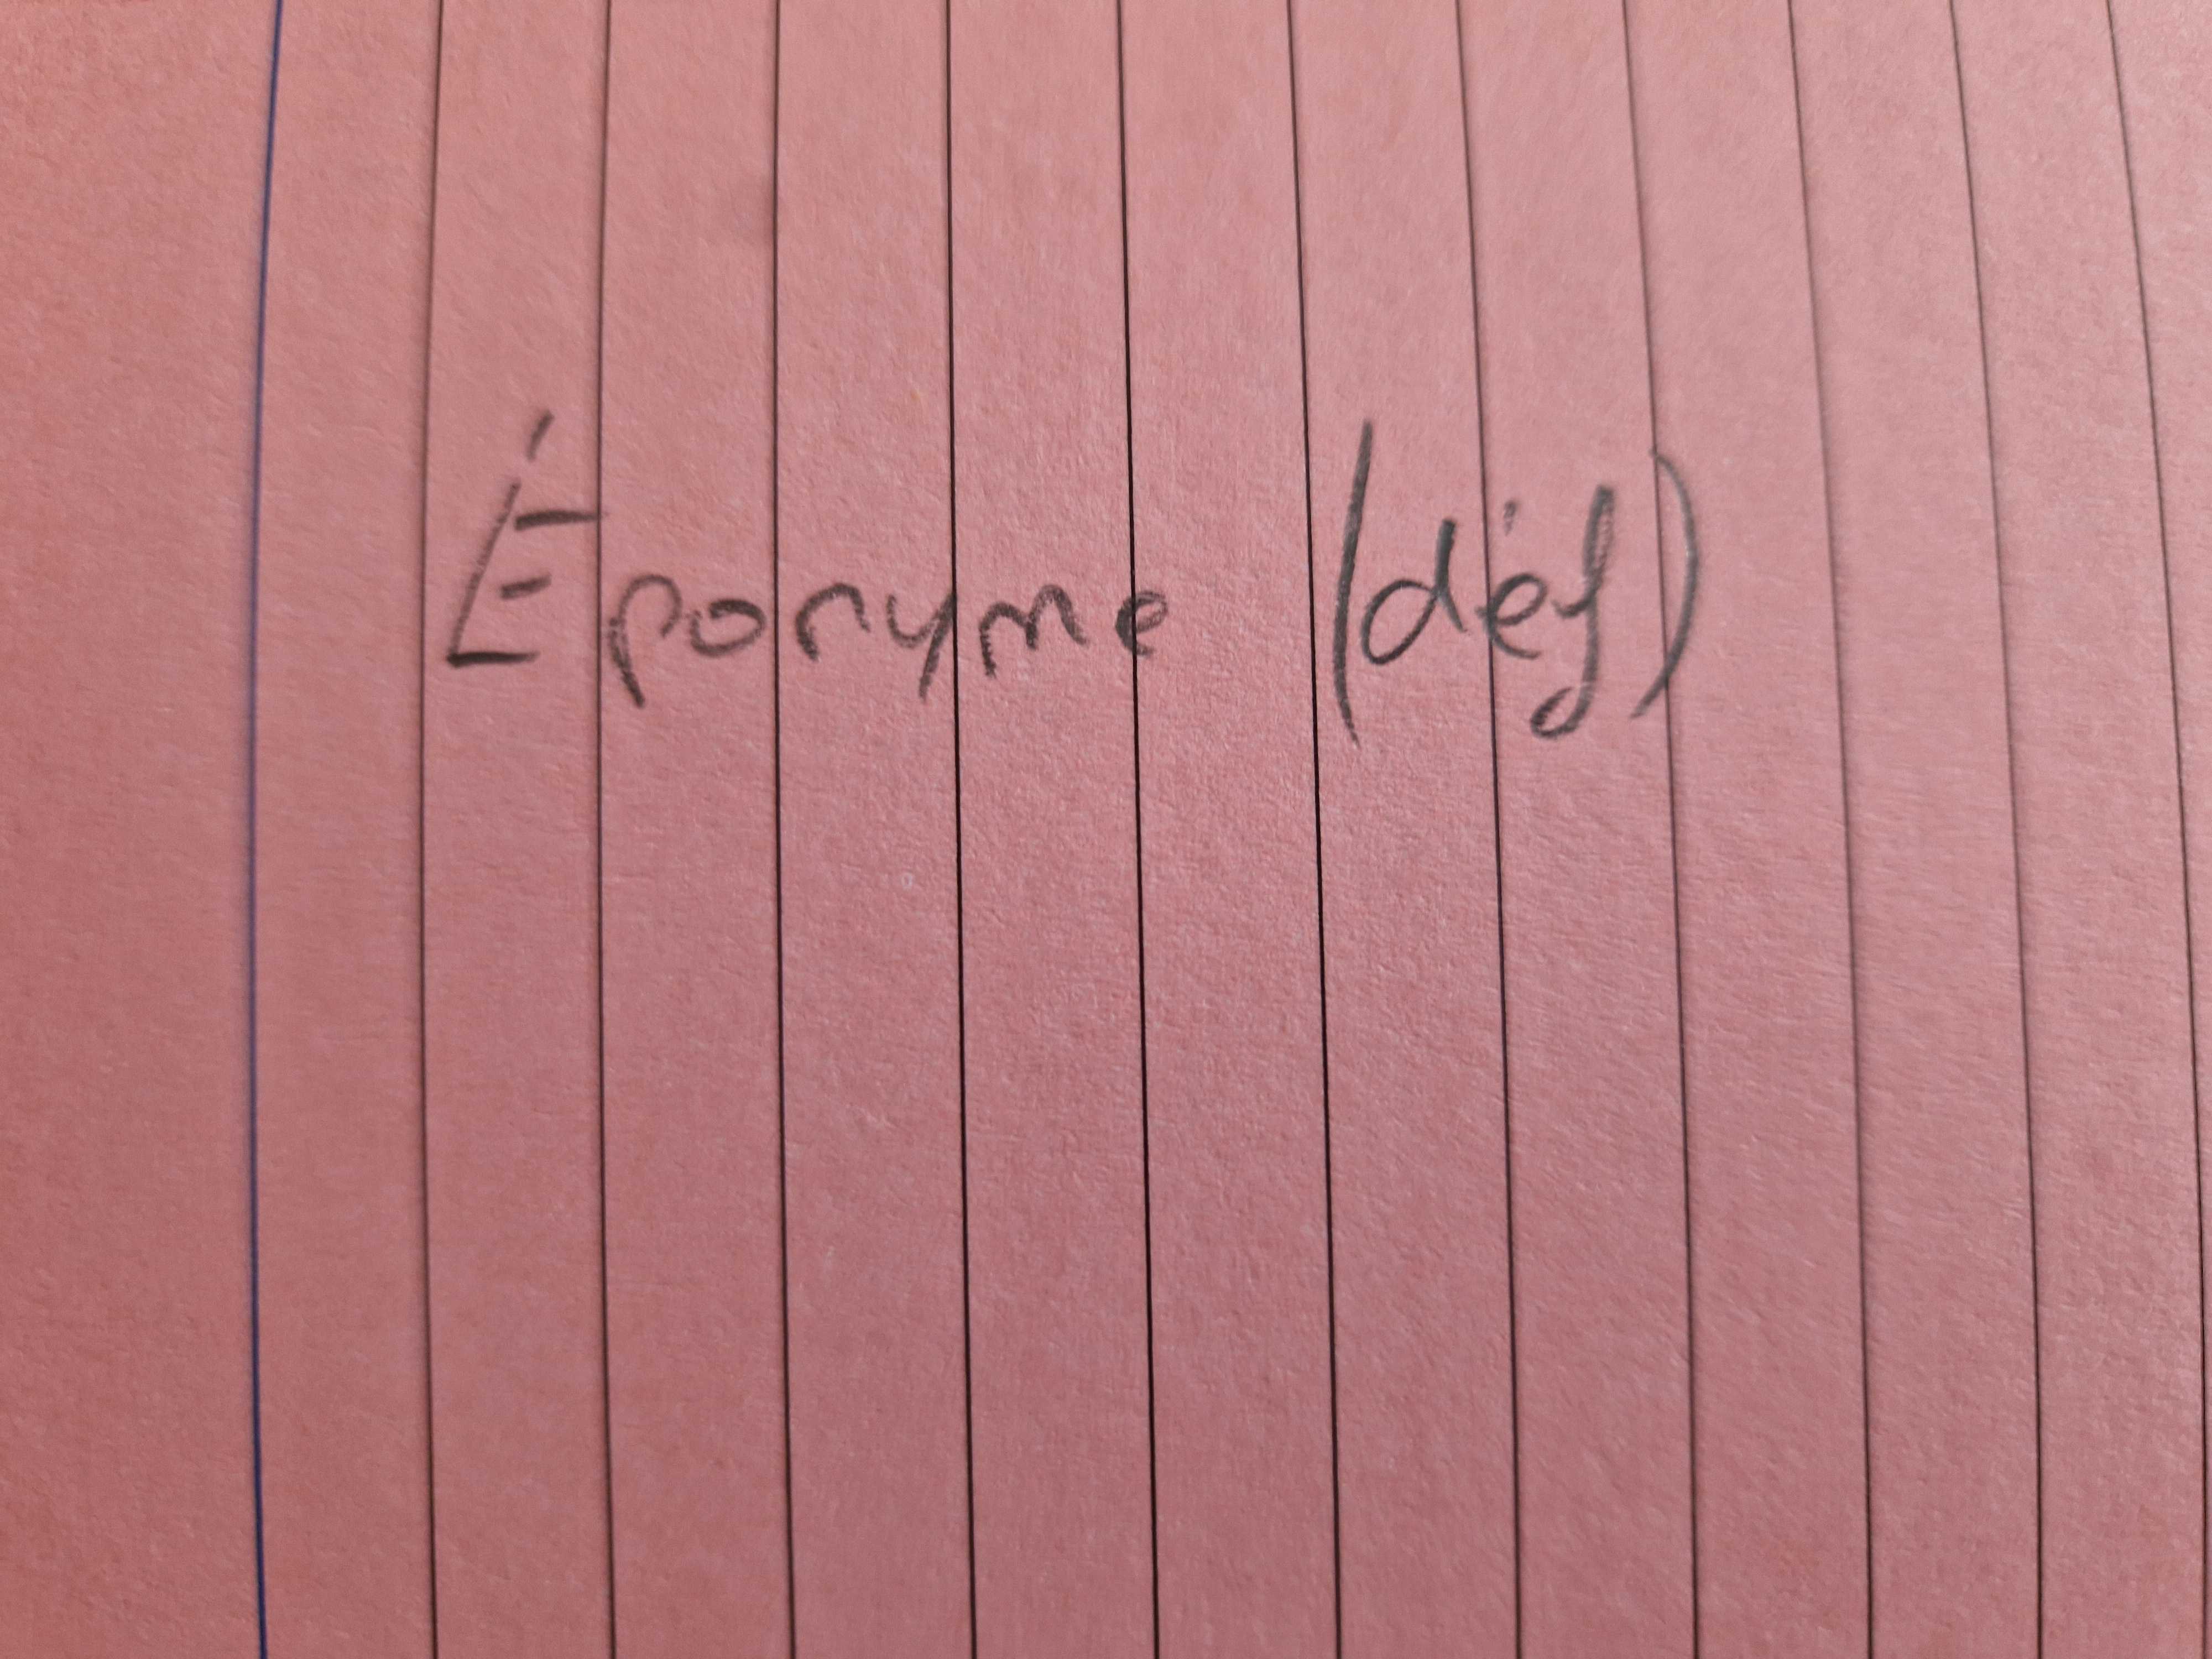 Éponyme (déf)